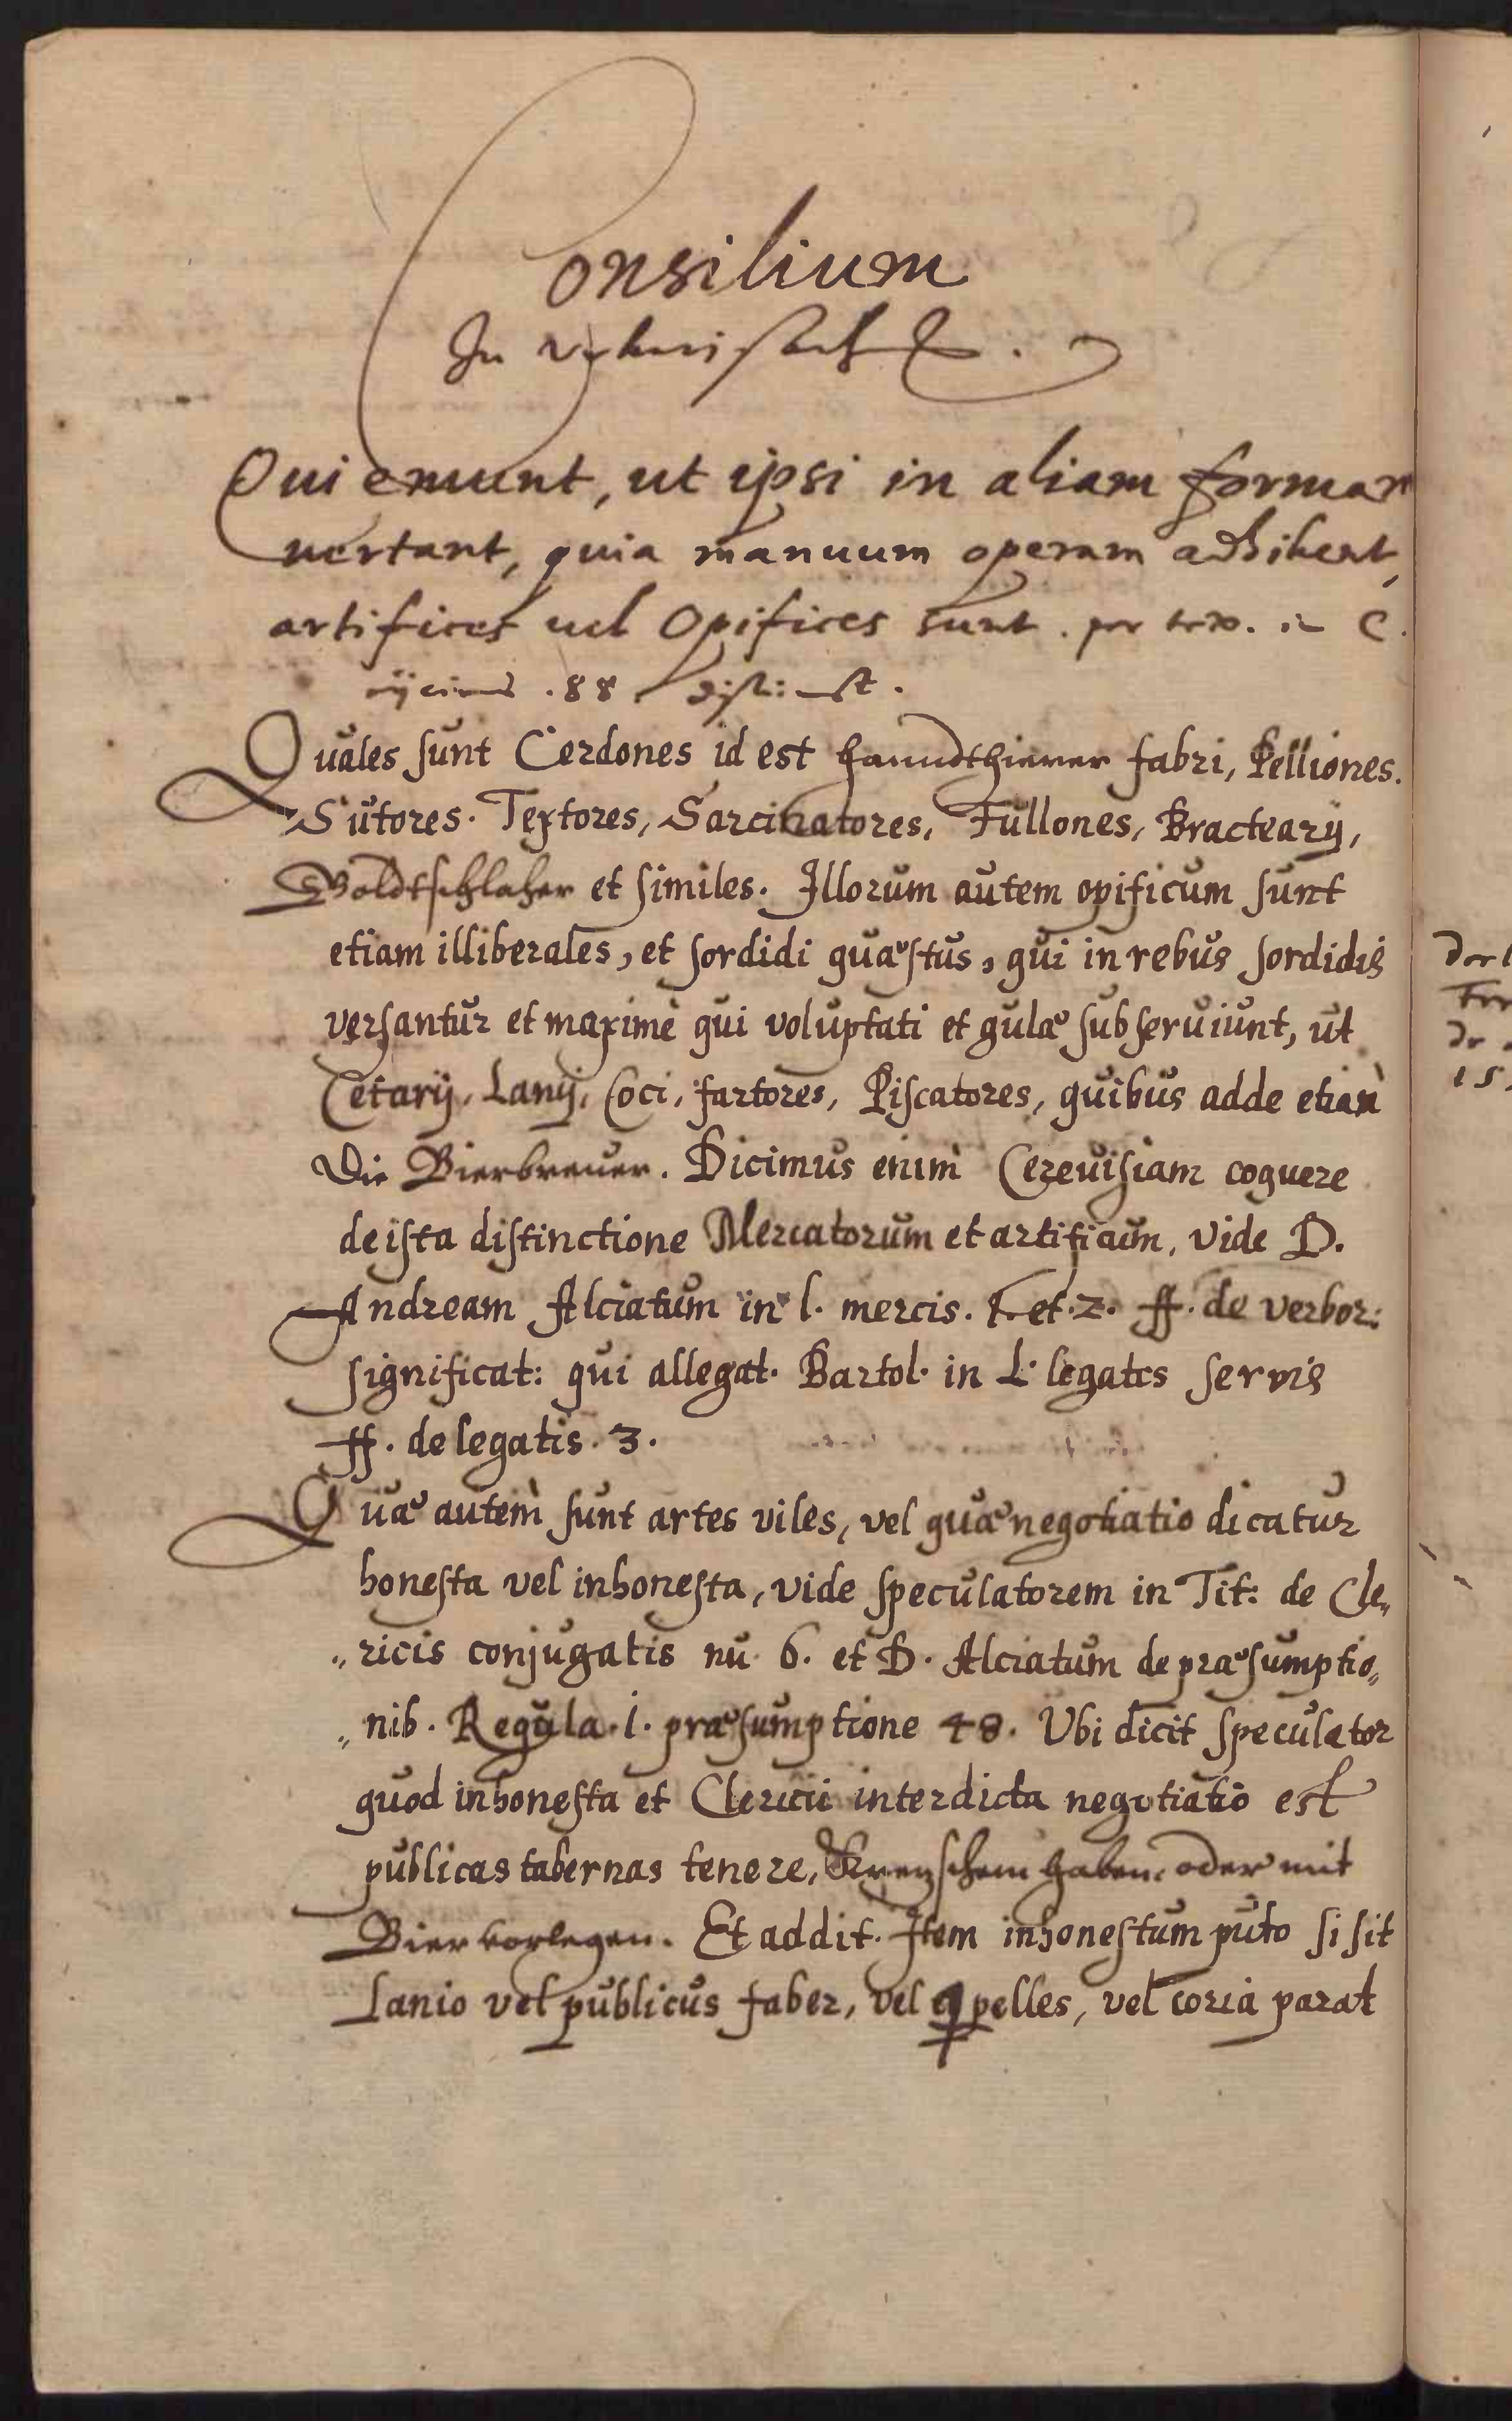 Consilium
In
Qui emunt, ut ipsi in aliam formam
uertant, quia manuum operam adhibent,
artifices uel Opifices sunt. per tex. in C.
. 88 dist:
Quales sunt Cerdones id est fabri, Pelliones.
Sutores. Textores, Sarcinatores, Fullones, Bractearij,
Goldtschlaher et similes. Illorum autem opificum sunt
etiam illiberales, et sordidi quæstus, qui in rebus sordidis
versantur et maximè qui voluptati et gulæ subseruiunt, ut
Cetarij, Lanij, Coci, fartores, Piscatores, quibus adde etiam
Die Bierbreuer. Dicimus enim Cereuisiam coquere
de ista distinctione Mercatorum et artificum, vide D.
Andream Alciatum in l. mercis. 1. et. 2. ff. de verbor:
significat: qui allegat. Bartol. in L. legatis servis
ff. de legatis. 3.
Quæ autem sunt artes viles, vel quæ negotiatio dicatur
honesta vel inhonesta, vide speculatorem in Tit: de Cle„
„ricis conjugatis nu. 6. et D. Alciatum de præsumptio„
„nib. Regula. 1. præsumptione 48. Ubi dicit speculator
quod inhonesta et Clerici interdicta negotiatio est
publicas tabernas tenere, Kretzschem haben, oder mit
Bier vorlegen. Et addit. Item inhonestum puto si sit
Lanio vel publicus faber, vel pelles, vel coria parat
15.